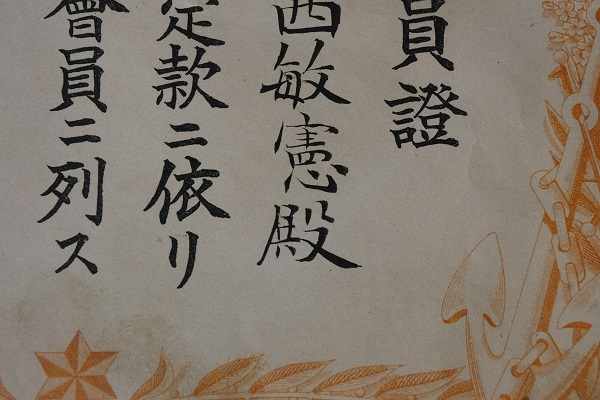 員證
西敏憲殿
定款ニ依リ
會員ニ列ス